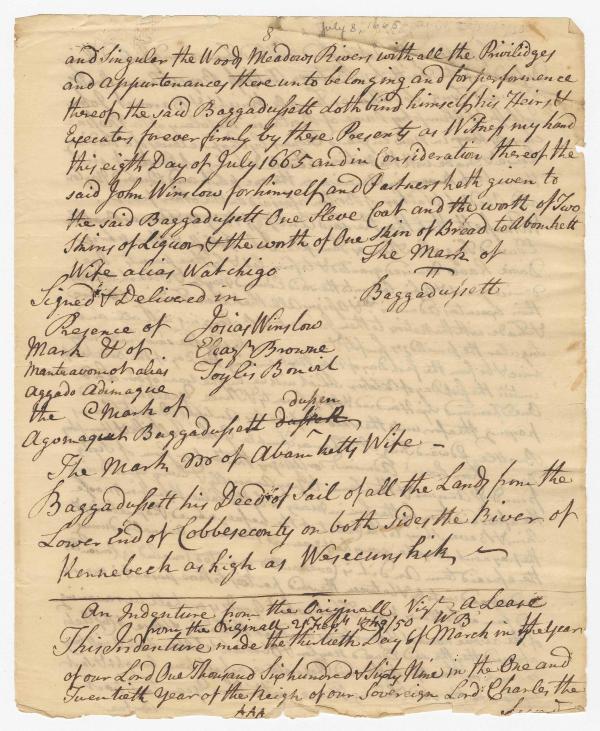 8 July 8, 1665
and Singular the Woods Meadows Rivers with all the Priviledges
and appurtenances there unto belonging and for performence
thereof the said Baggadussett doth bind himself his Heirs &
Executers forever firmly by these Presents as Witness my hand
this eighth Day of July 1665 and in Consideration thereof the
said John Winslow for himself and Partners heth given to
the said Baggadussett One Sleve Coat and the worth of Two
Skins of Liquor & the worth of One Skin of Bread to Abomhett
Wife alias Watchigo
The Mark of
Baggadussett
Signed & Delivered in
Presence of Josias Winslow
Mark & of Eleaz. Browne
Manteavomet alias
Aggado Adimaque
dussen
the C Mark of
Agomaquet Baggadussett
The Mark of Abam ketts Wife
Baggadussett his Deed of Sail of all the Lands from the
Lower End of Cobbeseconty on both Sides the River of
Kennebeck as high as Wesecunshik
An Indenture from the Originall Vizt a Lease
from the Originall W B
This Indenture made the thirtieth Day of March in the Year
of our Lord One Thousand Six hundred & Sixty Nine in the One and
Twentieth Year of the Reigh of our Sovereign Lord Charles the
Second